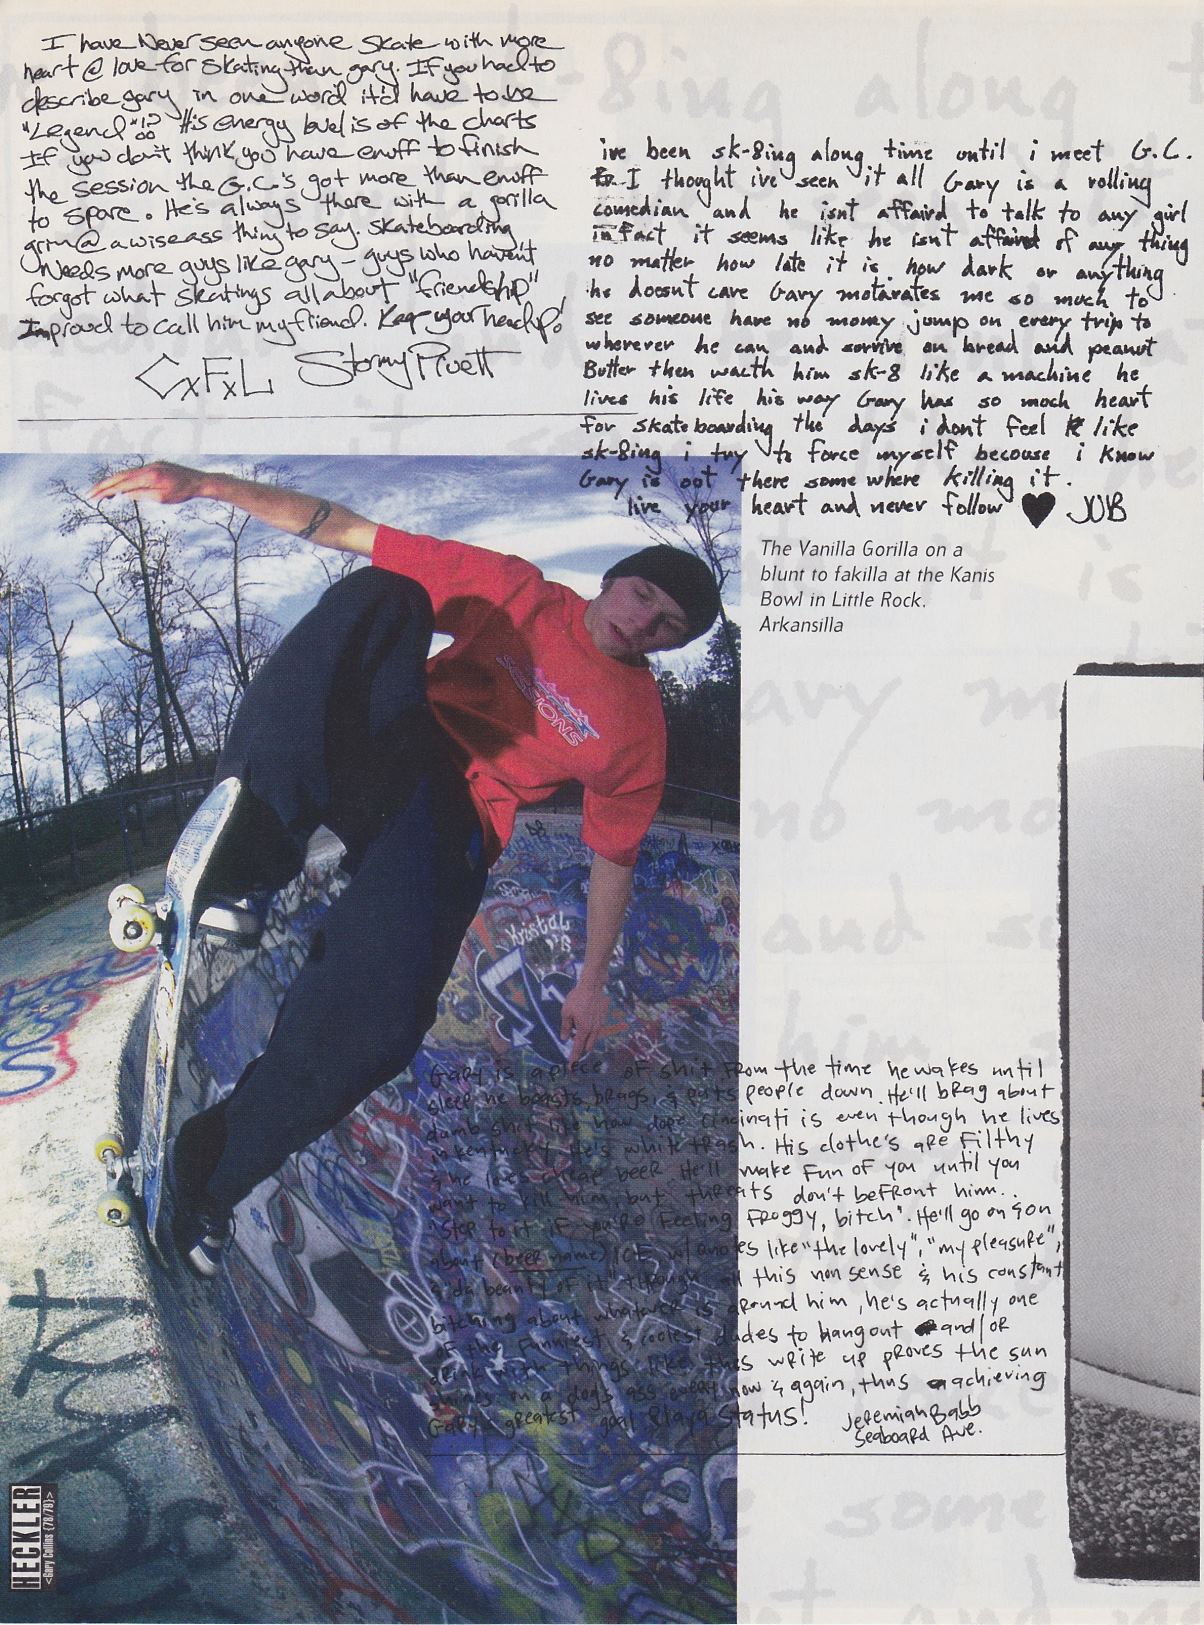 I have Never seen anyone skate with more
heart @ love for skating than gary. If you had to
describe gary in one word it'd have to be
"Legend"!? His energy level is of the charts
If you don't think you have enuff to finish
the session the G.C.'s got more than enuff
to spare. He's always there with a gorilla
grin @ a wiseass thing to say. skateboarding
Needs more guys like gary - guys who haven't
forgot what skatings all about "friendship"
Im proud to call him my friend. Keep your head up!
CxFxL Stormy Pruett
ive been sk-8ing along time until i meet G.C.
I thought ive seen it all Gary is a rolling
comedian and he isnt affaird to talk to any girl
infact it seems like he isnt affaird of any thing
no matter how late it is how dark or anything
he doesnt care Gary motarates me so much to
see someone have no momy jump on every trip to
wherever he can and sorvive on bread and peanut
Butter then wacth him sk-8 like a machine he
lives his life his way Gary has so much heart
for skateboarding the days i dont feel like
sk-8ing i try to force myself becouse i know
Gary is oot there some where killing it.
live your heart and never follow ♥ JUB
The Vanilla Gorilla on a
blunt to fakilla at the Kanis
Bowl in Little Rock.
Arkansilla
SESSIONS
Kristal
Gary is a piece of shit from the time he wakes until
sleep he boasts, brags, & puts people down. He'll brag about
dumb shit like how dope Cincinati is even though he lives
in kentucky. He's white trash. His clothe's are Filthy
& he loves cheap beer. He'll make fun of you until you
want to kill him, but threats don't befront him..
"Step to it if you're feeling Froggy, bitch". He'll go on & on
about (beer name) ICE w/ quotes like "the lovely", "my pleasure",
& "da beauty of it" through all this non sense & his constant
bitching about whatever is around him, he's actually one
of the funniest & coolest dudes to hangout and/or
drink with things like this write up proves the sun
shines on a dogs ass every now & again, thus achieving
Gary's greatest goal Playa Status!
Jeremiah Babb
Seaboard Ave.
HECKLER
<Gary Collins {78/79}>